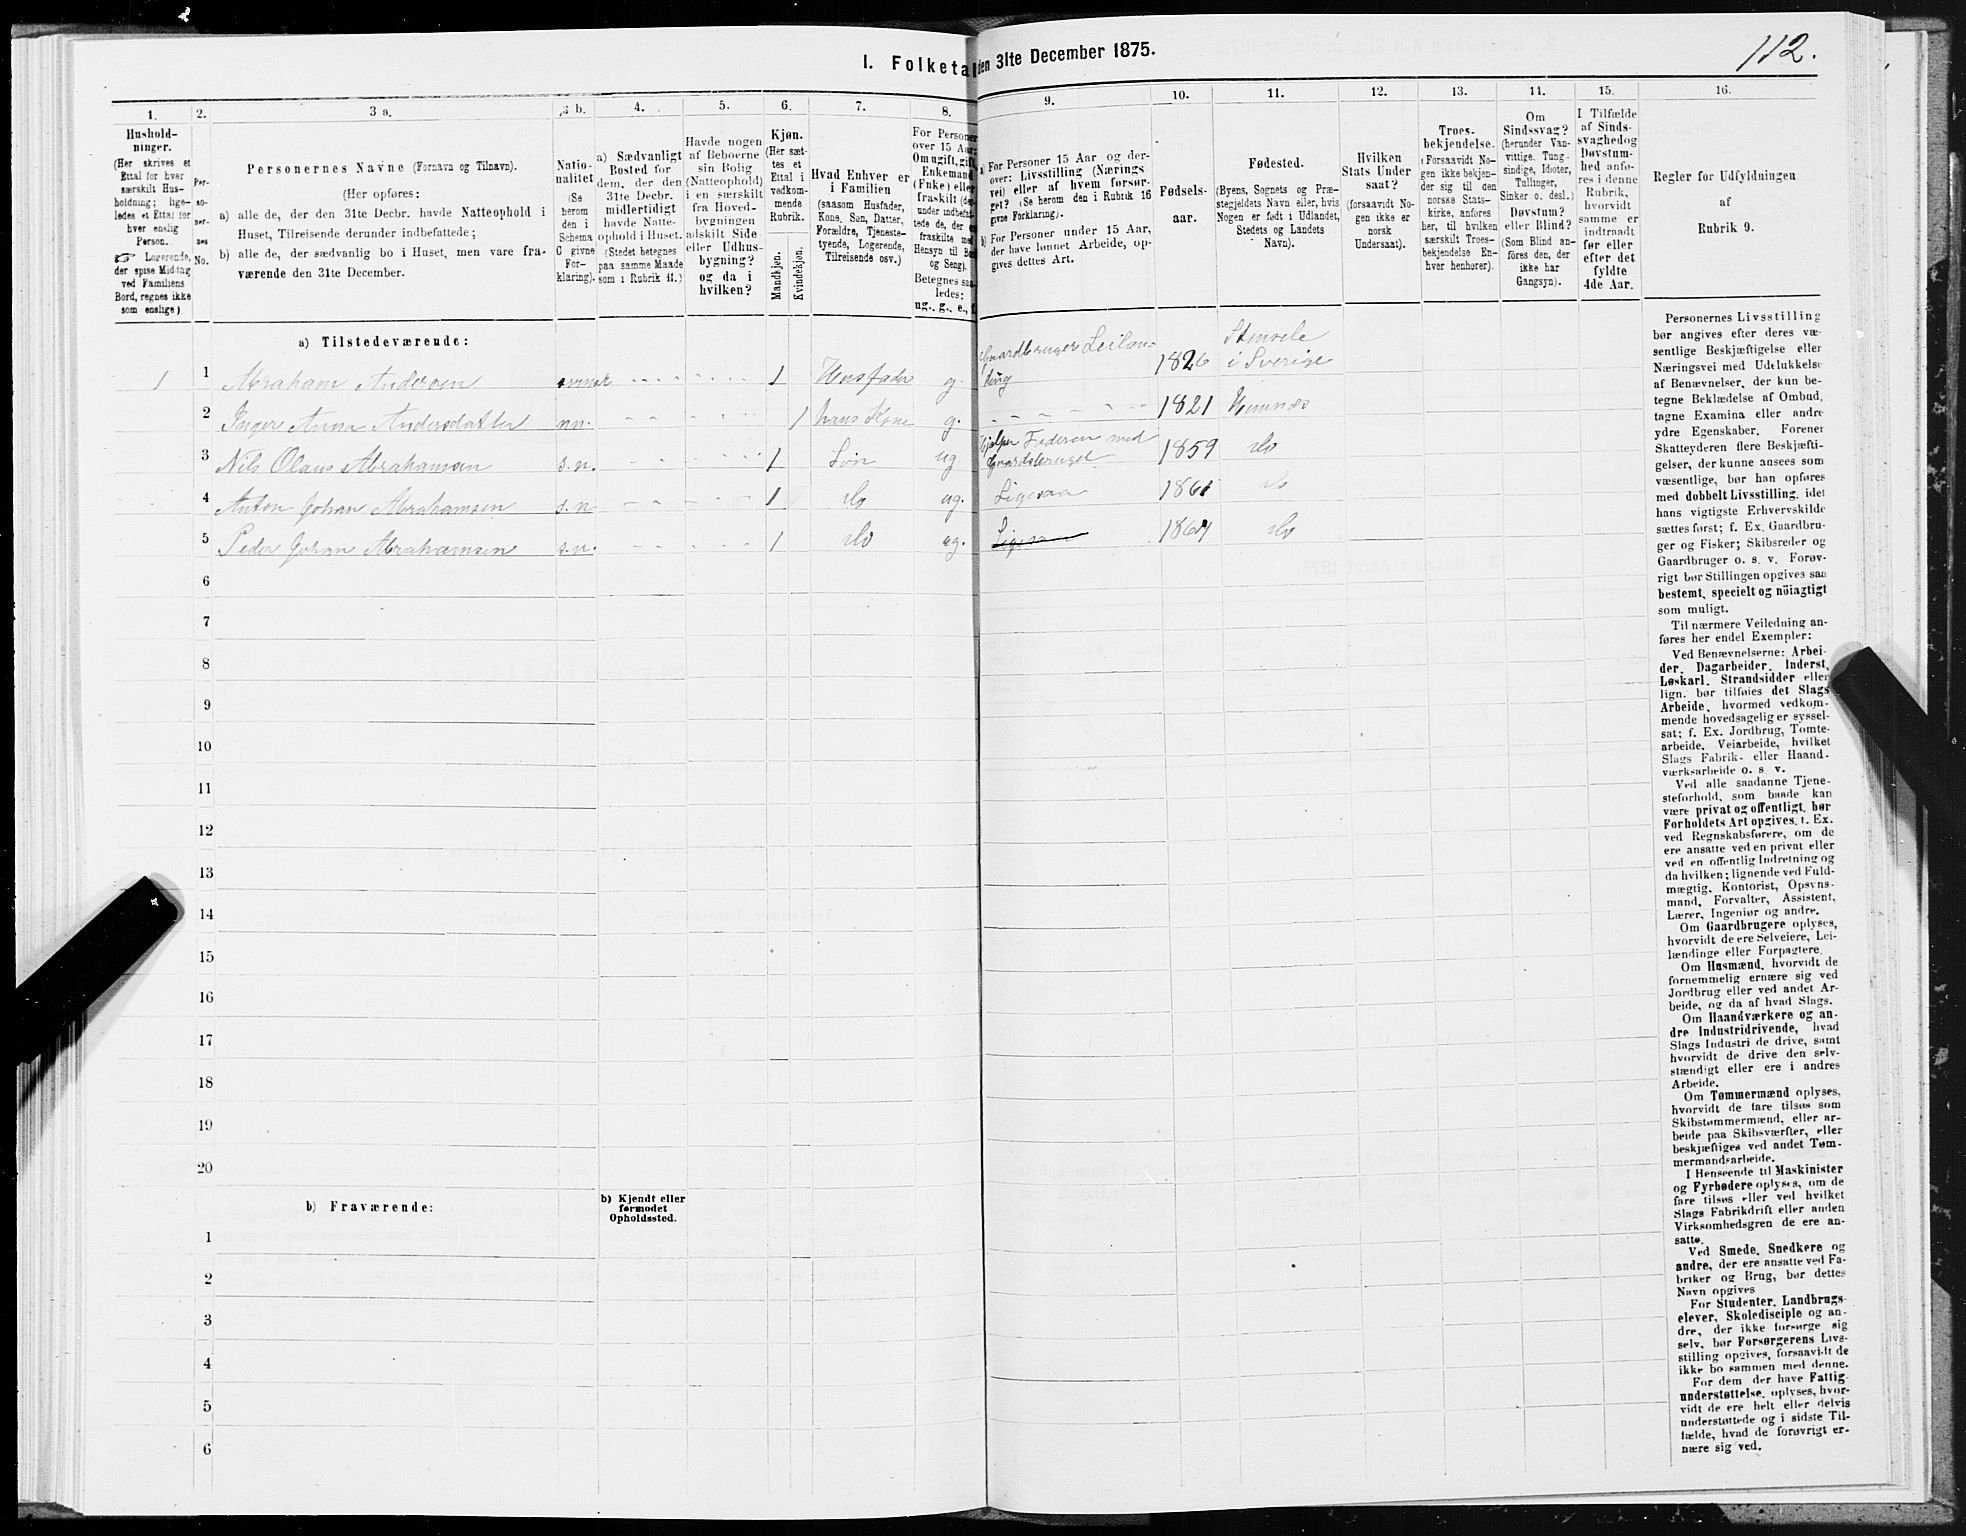 I. Folketal den 31te December 1875.
112.
1.
Hushold-
ninger.
(Her skrives et
Ettal for hver
særskilt Hus-
holdning; lige-
ledes et Ettal for
hver enslig
Person.
☞ Logerende,
der spise Middag
ved Familiens
Bord, regnes ikke
som enslige)
2.
Per-
so-
ner-
nes
No.
3 a.
Personernes Navne (Fornavn og Tilnavn).
(Her opføres:
a) alle de, der den 31te Decbr. havde Natteophold i
Huset, Tilreisende derunder indbefattede;
b) alle de, der sædvanlig bo i Huset, men vare fra-
værende den 31te December.
3 b.
Natio-
nalitet
(Se
herom
den i
Schema
C givne
For-
klaring).
4.
a) Sædvanligt
Bosted for
dem, der den
31te Decbr.
midlertidigt
havde Natte-
ophold i Huset.
(Stedet betegnes
paa samme Maade
som i Rubrik 11.)
5.
Havde nogen
af Beboerne
sin Bolig
(Natteophold)
i en særskilt
fra Hoved-
bygningen
adskilt Side-
eller Udhus-
bygning?
og da i
hvilken?
6.
Kjøn.
(Her sæt-
tes et
Ettal i
vedkom-
mende
Rubrik.
Mandkjøn.
Kvindekjøn.
7.
Hvad Enhver er
i Familien
(saasom Husfader,
Kone, Søn, Datter,
Forældre, Tjeneste-
tyende, Logerende,
Tilreisende osv.)
8.
For Personer
over 15 Aar:
Om ugift, gift,
Enkemand
(Enke) eller
fraskilt
Betegnes saa-
ledes:
ug., g., e., f.
9.
a) For Personer 15 Aar og der-
over: Livsstilling (Nærings
vei) eller af hvem forsør-
get? (Se herom den i Rubrik 16
givne Forklaring).
b) For Personer under 15 Aar,
der have lønnet Arbeide, op-
gives dettes Art.
10.
Fødsels-
aar.
11.
Fødested.
(Byens, Sognets og Præ-
stegjeldets Navn eller, hvis
Nogen er født i Udlandet,
Stedets og Landets
Navn).
12.
Hvilken
Stats Under
saat?
(forsaavidt No-
gen ikke er
norsk
Undersaat).
13.
Troes-
bekjendelse.
(Forsaavidt No-
gen ikke bekjen-
der sig til den
norske Stats-
kirke, anføres
her, til hvilken
særskilt Troes-
bekjendelse En-
hver henhører).
14.
Om
Sindssvag?
(herunder Van-
vittige, Tung-
sindige, Idioter,
Tullinger,
Sinker o. desl.)
Døvstum?
eller Blind?
(Som Blind an-
føres den, der
ikke har
Gangsyn).
15.
I Tilfælde
af Sinds-
svaghed og
Døvstum-
hed anfø-
res i denne
Rubrik,
hvorvidt
samme er
indtraadt
før eller
efter det
fyldte
4de Aar.
16.
Regler for Udfyldningen
af
Rubrik 9.
a) Tilstedeværende:
1 1 Abraham Andersen svensk 1 Husfader g. Gaardbruger Leilæn-ding 1826 Stensele i Sverige
2 Inger Anna Andersdatter nn. 1 hans Kone g. 1821 Hemnæs
3 Nils Olaus Abrahamsen s.n. 1 Søn ug. Hjelper Faderen med Gaardsbruget 1859 do
4 Anton Johan Abrahamsen s.n. 1 do ug. Ligesaa 1861 do
5 Peder Johan Abrahamsen s.n. 1 do ug. Ligesaa do
6
7
8
9
10
11
12
13
14
15
16
17
18
19
20
b) Fraværende:
b) Kjendt eller
formodet
Opholdssted.
1
2
3
4
5
6
Personernes Livsstilling
bør angives efter deres væ-
sentlige Beskjæftigelse eller
Næringsvei med Udelukkelse
af Benævnelser, der kun be-
tegne Beklædelse af Ombud,
tagne Examina eller andre
ydre Egenskaber. Forener
Skatteyderen flere Beskjæfti-
gelser, der kunne ansees som
væsentlige, bør han opføres
med dobbelt Livsstilling, idet
hans vigtigste Erhvervskilde
sættes først; f. Ex. Gaardbru-
ger og Fisker; Skibsreder og
Gaardbruger o. s. v. Forøv-
rigt bør Stillingen opgives saa
bestemt, specielt og nöiagtigt
som muligt.
Til nærmere Veiledning an-
føres her endel Exempler:
Ved Benævnelserne: Arbei-
der, Dagarbeider, Inderst,
Løskarl, Strandsidder eller
lign. bør tilføies det Slags
Arbeide, hvormed vedkom-
mende hovedsagelig er syssel-
sat; f. Ex. Jordbrug, Tomte-
arbeide, Veiarbeide, hvilket
Slags Fabrik- eller Haand-
værksarbeide o. s. v.
Ved alle saadanne Tjene-
steforhold, som baade kan
være privat og offentligt, bør
Forholdets Art opgives, f. Ex.
ved Regnskabsførere, om de
ere ansatte ved en privat eller
ved en offentlig Indretning og
da hvilken; lignende ved Fuld-
mægtig, Kontorist, Opsyns-
mand, Forvalter, Assistent,
Lærer, Ingeniør og andre.
Om Gaardbrugere oplyses,
hvorvidt de ere Selveiere, Lei-
lændinge eller Forpagtere.
Om Husmænd, hvorvidt de
fornemmelig ernære sig ved
Jordbrug eller ved andet Ar-
beide, og da af hvad Slags.
Om Haandværkere og an-
dre Industridrivende, hvad
Slags Industri de drive, samt
hvorvidt de drive den selv-
stændigt eller ere i andres
Arbeide.
Om Tømmermænd oplyses,
hvorvidt de fare tilsøs som
Skibstømmermænd, eller ar-
beide paa Skibsværfter, eller
beskjæftiges ved andet Tøm-
mermandsarbeide.
I Henseende til Maskinister
og Fyrbødere oplyses, om de
fare tilsøs eller ved hvilket
Slags Fabrikdrift eller anden
Virksomhedsgren de ere an-
satte.
Ved Smede, Snedkere og
andre, der ere ansatte ved Fa-
briker og Brug, bør dettes
Navn opgives
For Studenter, Landbrugs-
elever, Skoledisciple og an-
dre, der ikke forsørge sig
selv, bør Forsørgerens Livs-
stilling opgives, forsaavidt de
ikke bo sammen med denne.
For dem der have Fattig
understøttelse, oplyses, hvor-
vidt de ere helt eller delvis
understøttede og i sidste Til-
fælde, hvad de forøvrigt er-
nære sig ved.